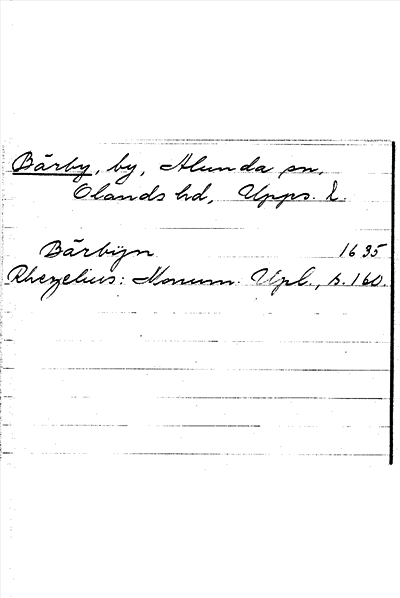 Bärby, by, Alunda sn,
Olands hd, Upps. l.
Bärbÿn 1635
Rhezelius: Monum. Upl., s. 160.